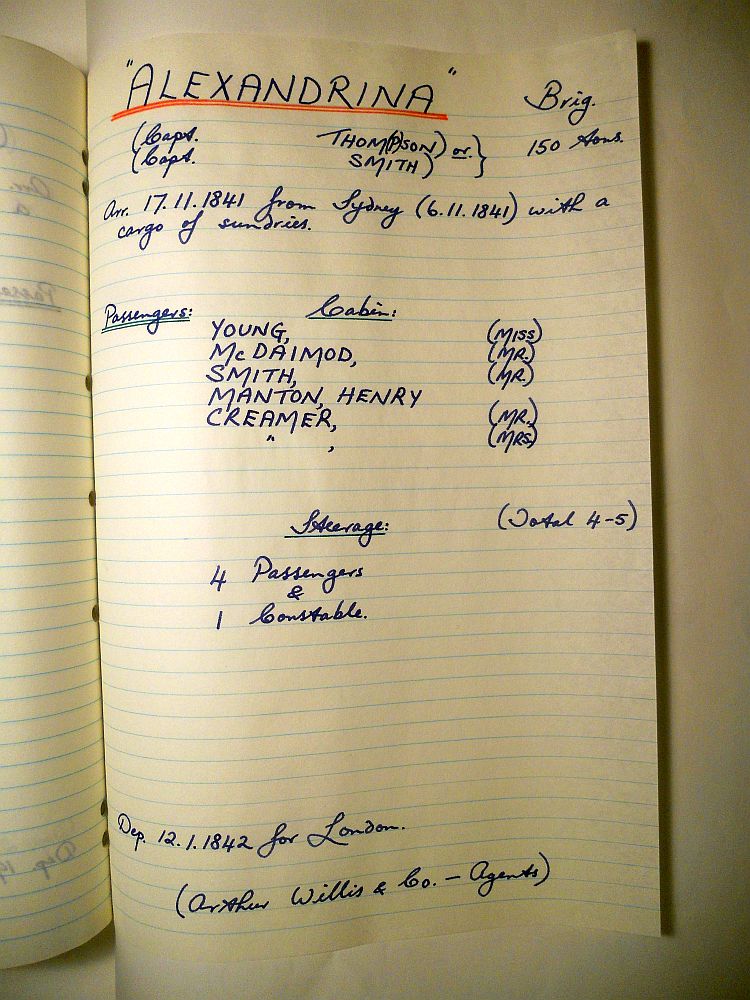 "ALEXANDRINA" Brig.
(Capt. THOM(P)SON) or } 150 tons.
(Capt. SMITH)
Arr. 17.11.1841 from Sydney (6.11.1841) with a
cargo of sundries.
Passengers: Cabin:
YOUNG, (MISS)
McDAIMOD, (MR.)
SMITH, (MR.)
MANTON, HENRY
CREAMER, (MR.)
" , (MRS)
Steerage: (Total 4-5)
4 Passengers
&
1 Constable.
Dep. 12.1.1842 for London.
(Arthur Willis & Co. - Agents)